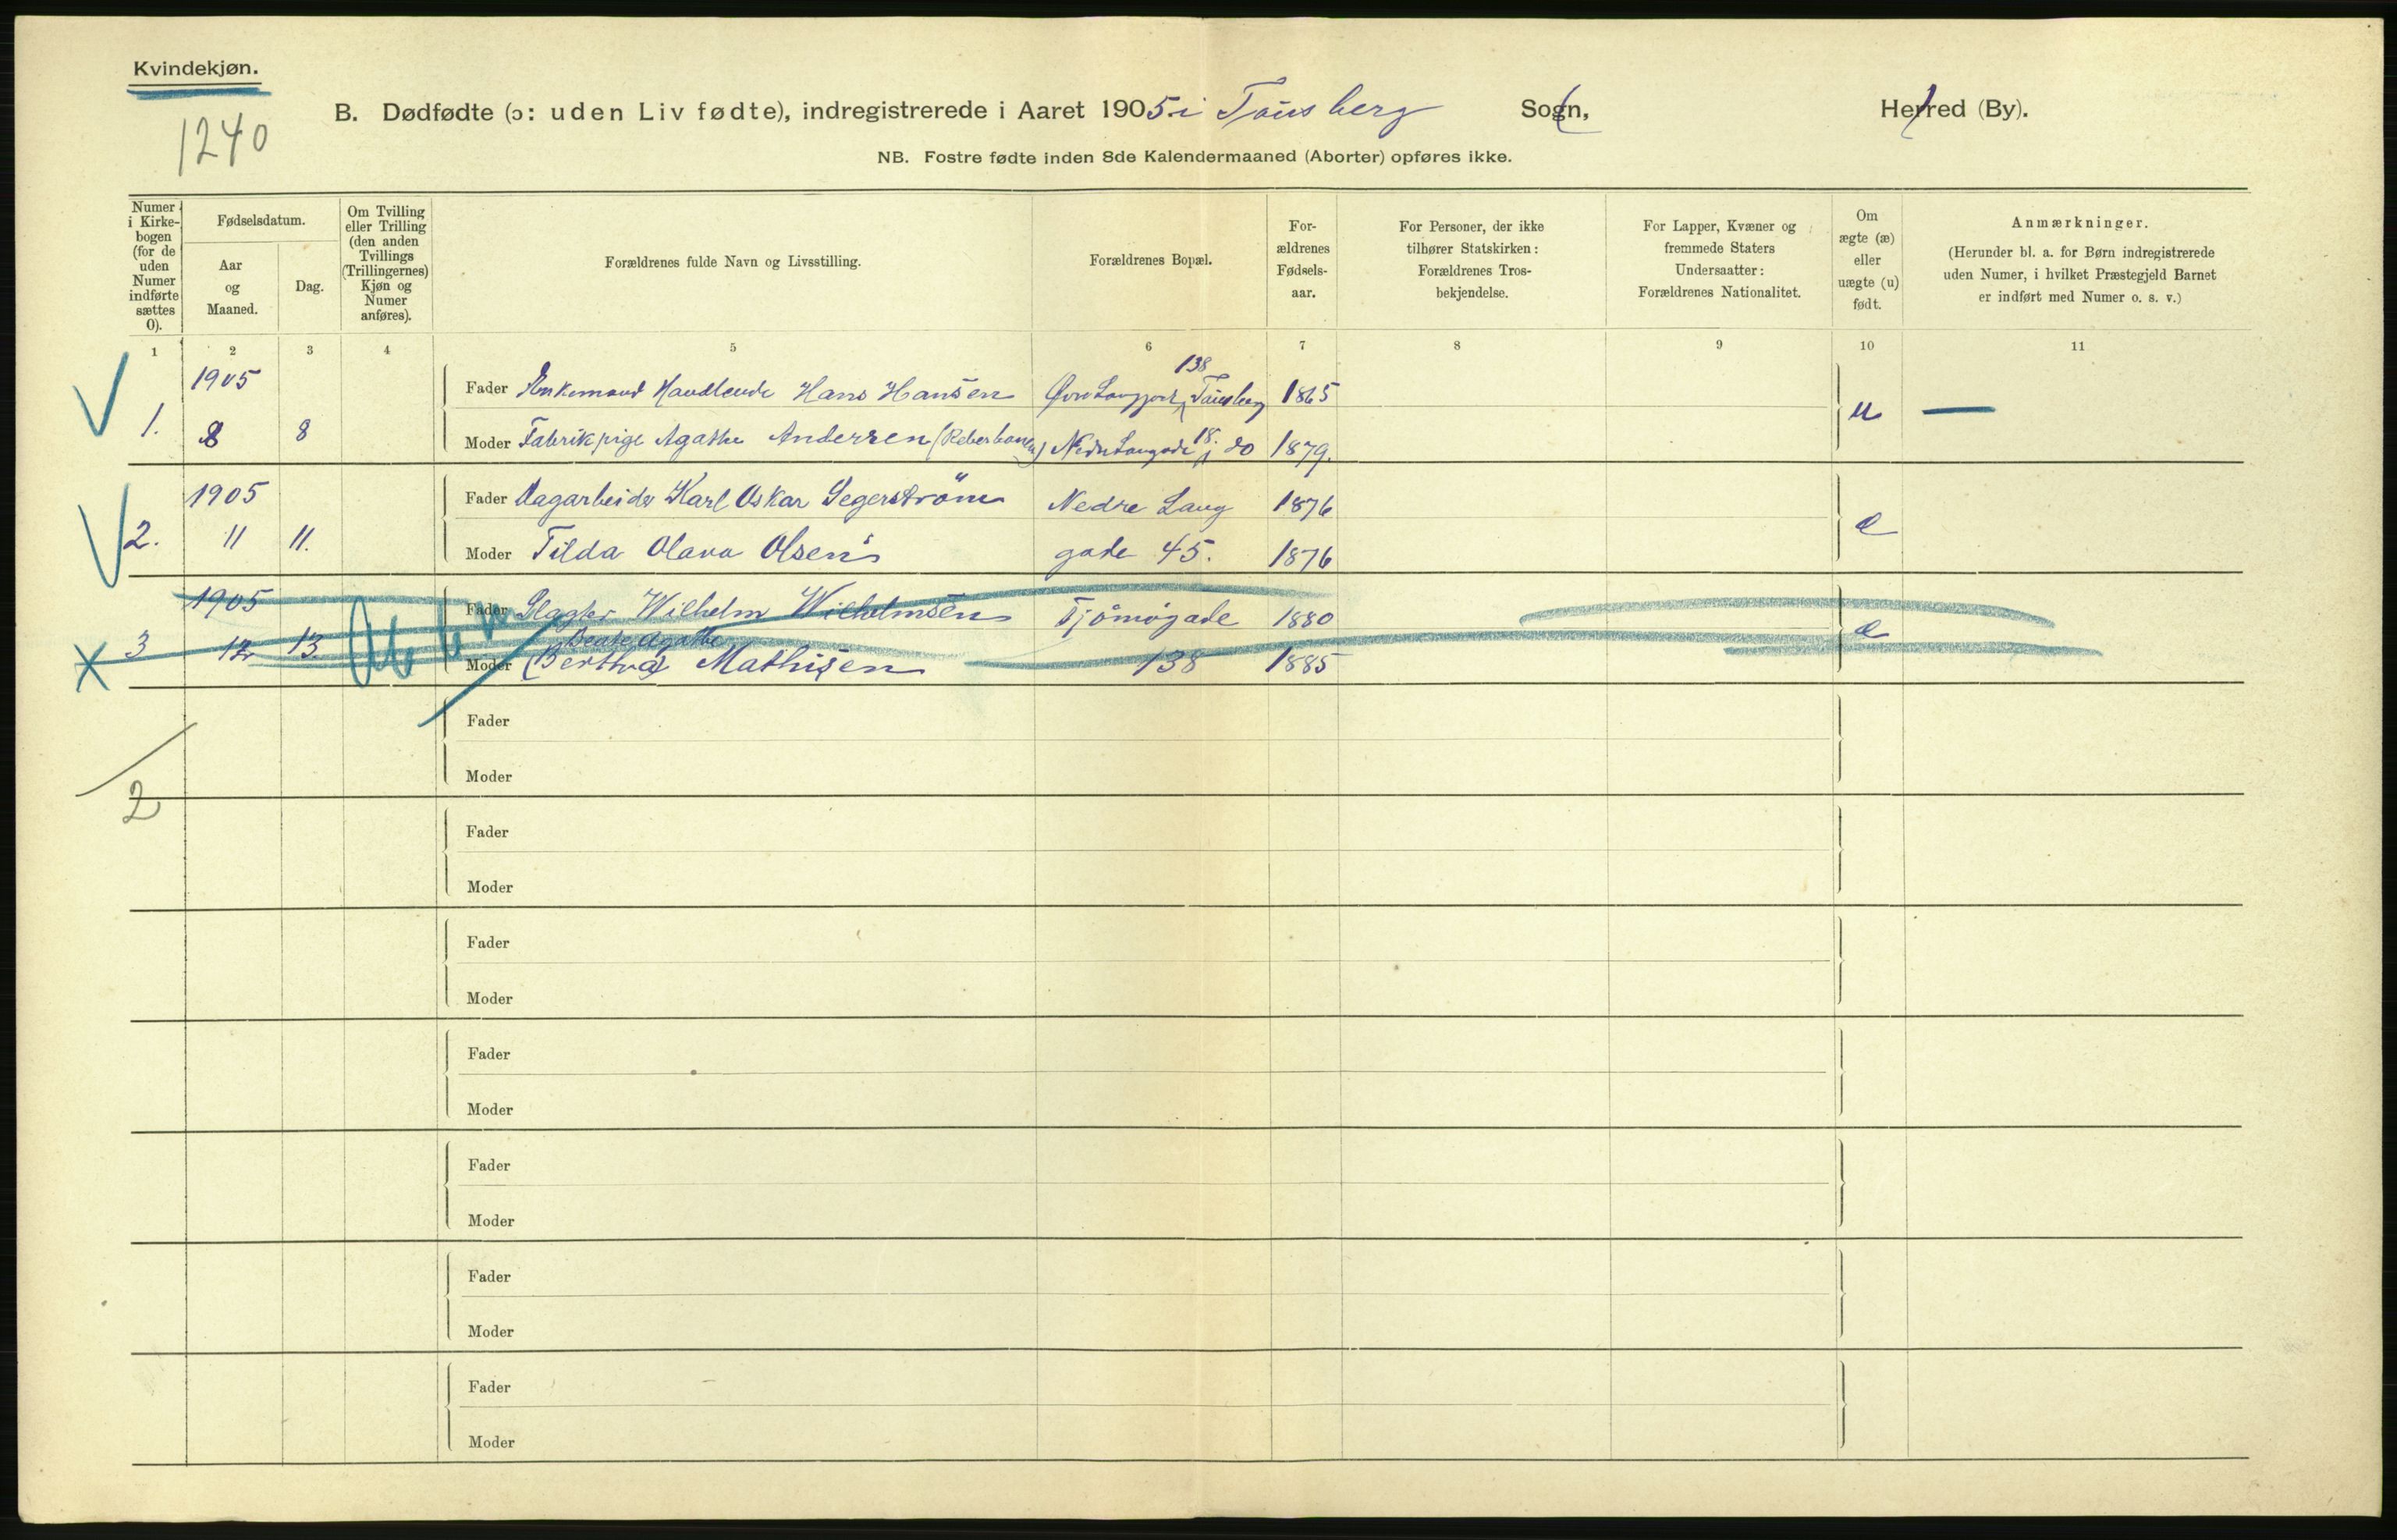 Kvindekjøn.
1240
B. Dødfødte (ɔ: uden Liv fødte), indregistrerede i Aaret 1905 i Tønsberg Sogn, Herred (By).
NB. Fostre fødte inden 8de Kalendermaaned (Aborter) opføres ikke.
Numer i Kirkebogen (for de uden Numer indførte sættes 0).
Fødselsdatum.
Aar og Maaned.
Dag.
Om Tvilling eller Trilling (den anden Tvillings (Trillingernes) Kjøn og Numer anføres).
Forældrenes fulde Navn og Livsstilling.
Forældrenes Bopæl.
Forældrenes Fødselsaar.
For Personer, der ikke tilhører Statskirken: Forældrenes Trosbekjendelse.
For Lapper, Kvæner og fremmede Staters Undersaatter: Forældrenes Nationalitet.
Om ægte (æ) eller uægte (u) født.
Anmærkninger.
(Herunder bl. a. for Børn indregistrerede uden Numer, i hvilket Præstegjeld Barnet er indført med Numer o. s. v.)
1 2 3 4 5 6 7 8 9 10 11
1905 138
Fader Enkemand Handlende Hans Hansen Tønsberg 1865
1. 8 8 u —
Moder Fabrikpige Agathe Andersen (Reberbanen) Nedre Langgade 18. do 1879.
1905
Fader Dagarbeider Karl Oskar Segerström Nedre Lang 1876
2. 11 11. æ
Moder Tilda Olava Olsen gade 45. 1876
1905
Fader Slagter Wilhelm Wilhelmsen Tjømøgade 1880
3 12 13. æ
Beate Agathe
Moder (Bertha) Mathisen 138 1885
Fader
Moder
2
Fader
Moder
Fader
Moder
Fader
Moder
Fader
Moder
Fader
Moder
Fader
Moder